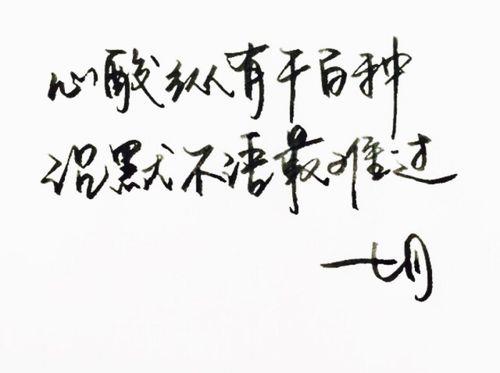 心酸纵有千百种
沉默不语最难过
七月